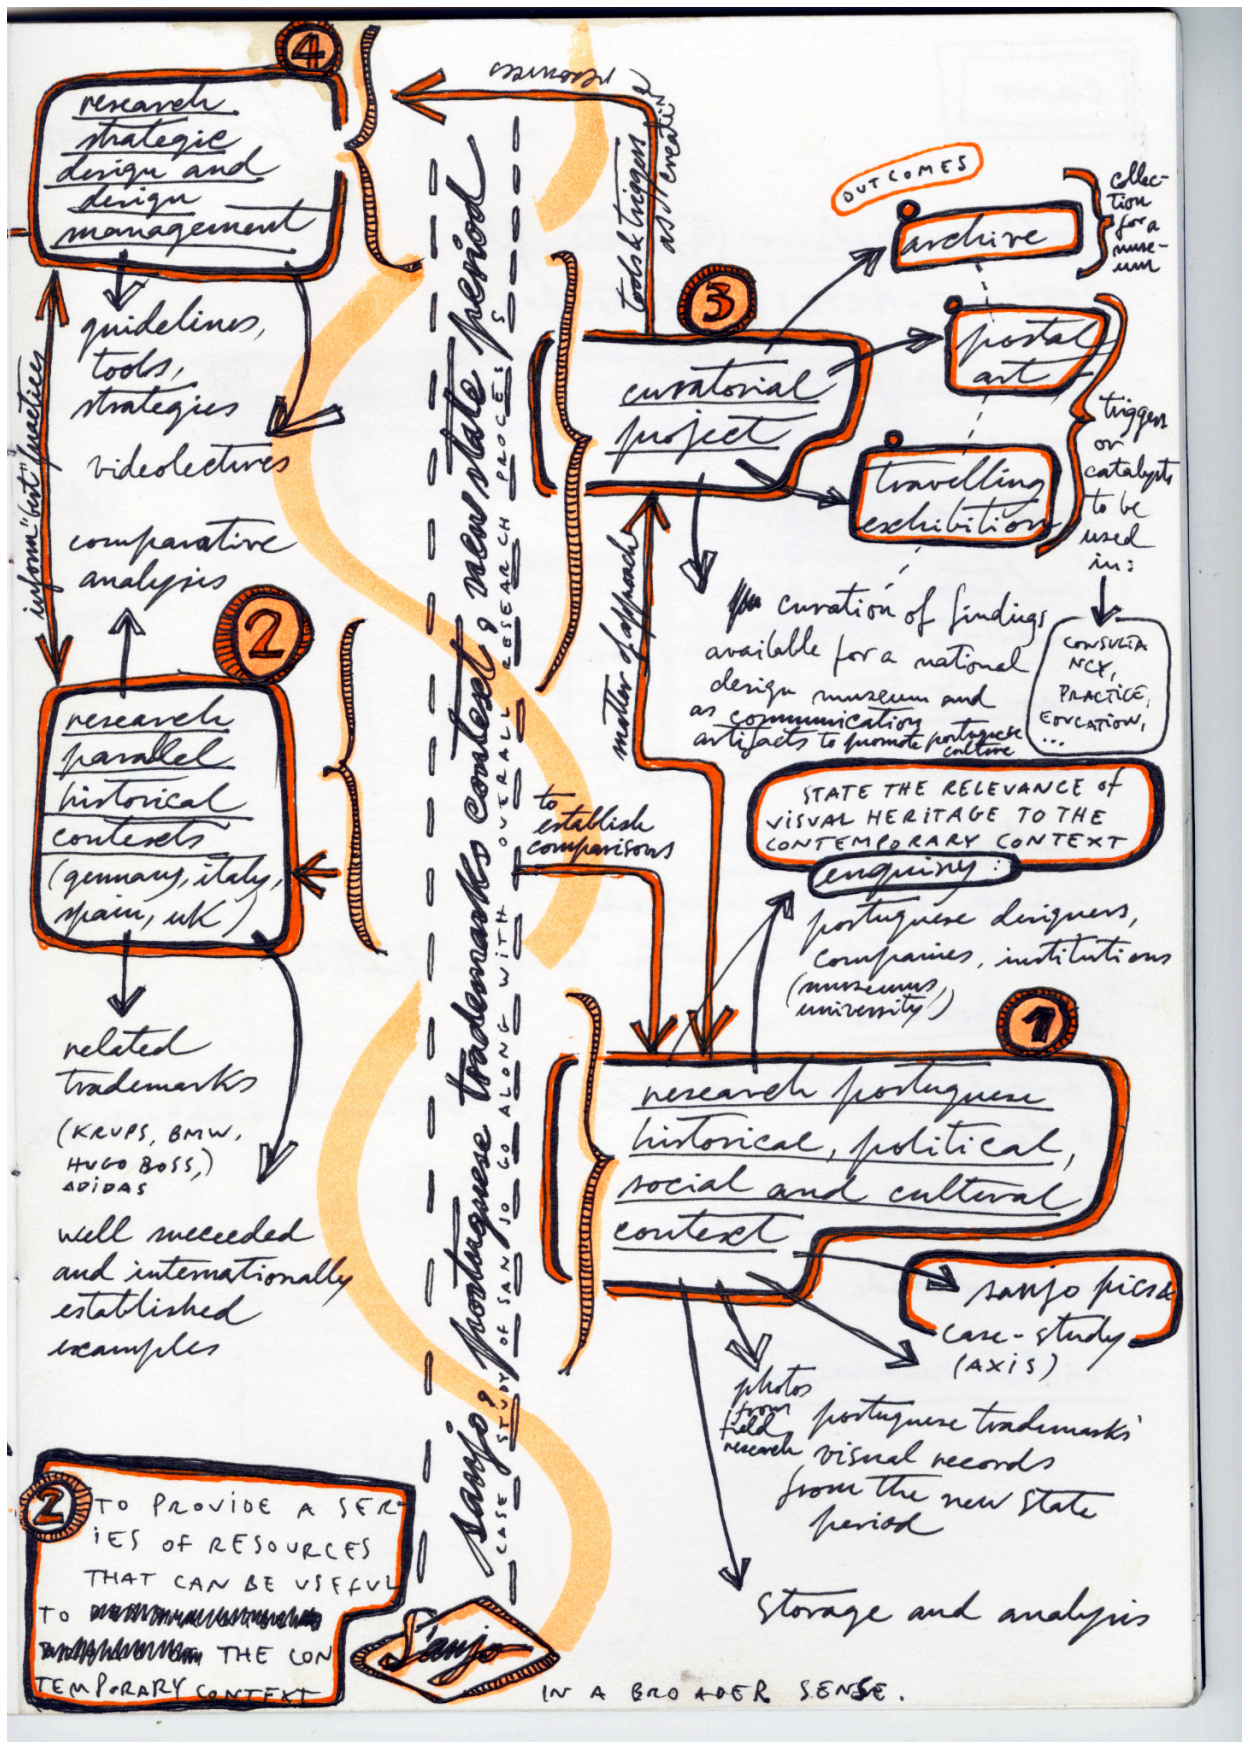 4
research
strategic
design and
design
management
guidelines,
tools,
strategies
videolectures
inform "best" practices
comparative
analysis
2
research
parallel
historical
contexts
(germany, italy,
spain, uk)
related
trademarks
(KRUPS, BMW,
HUGO BOSS,)
ADIDAS
well succeeded
and internationally
established
examples
2
TO PROVIDE A SER-
IES OF RESOURCES
THAT CAN BE USEFUL
TO
THE CON
TEMPORARY CONTEXT
IN A BROADER SENSE.
Sanjo
sanjo, portuguese trademarks context, new state period
CASE STUDY OF SANJO GO ALONG WITH OVERALL RESEARCH PROCESS
tools & triggers
as creative
resources
3
curatorial
project
OUTCOMES
archive
collec-
tion
for a
muse-
um
postal
art
travelling
exhibition
triggers
or
catalysts
to be
used
in:
CONSULTA
NCY,
PRACTICE,
EDUCATION,
...
curation of findings
available for a national
design museum and
as communication
artifacts to promote portuguese
culture
matter of approach
to
establish
comparisons
STATE THE RELEVANCE of
VISUAL HERITAGE TO THE
CONTEMPORARY CONTEXT
enquiry:
portuguese designers,
companies, institutions
(museums,
university)
1
research portuguese
historical, political,
social and cultural
context
sanjo pics &
case-study
(AXIS)
photos
from
field
research
portuguese trademarks'
visual records
from the new state
period
storage and analysis